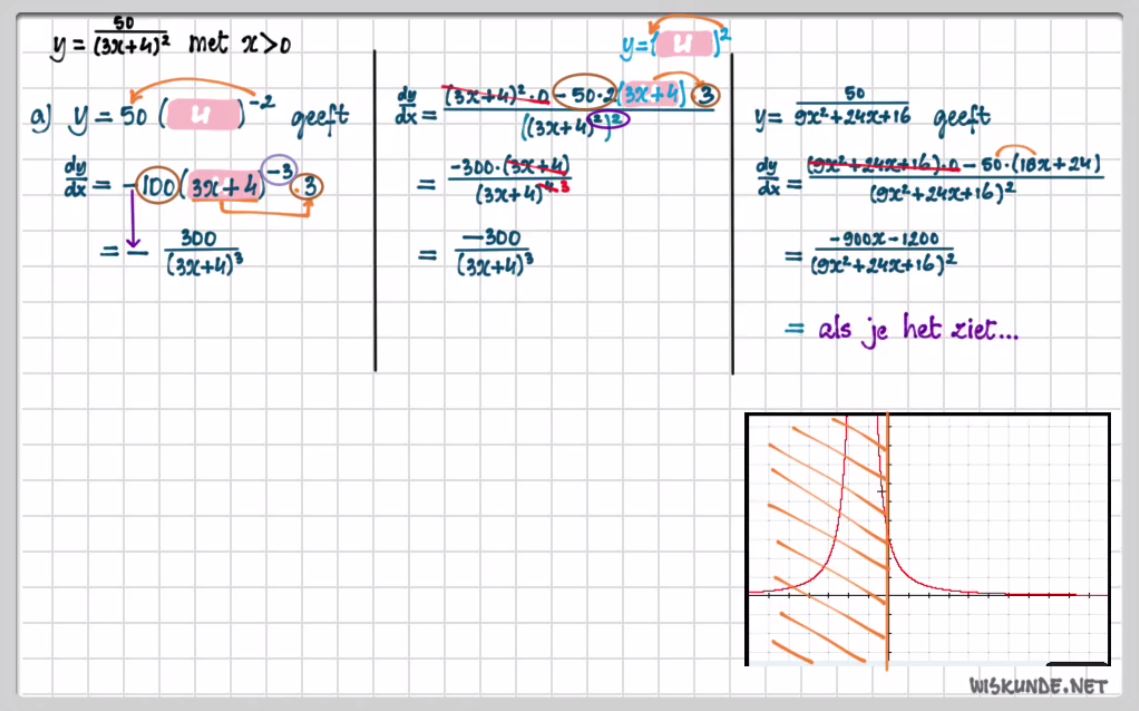 y = 50/(3x+4)² met x>0
a) y = 50 (u)⁻² geeft
dy/dx = -100(3x+4)⁻³·3
= - 300/(3x+4)³
y=(u)²
dy/dx = ((3x+4)²·0 - 50·2(3x+4)·3)/((3x+4)²)²
= -300·(3x+4)/(3x+4)⁴·³
= -300/(3x+4)³
y = 50/(9x²+24x+16) geeft
dy/dx = ((9x²+24x+16)·0 - 50·(18x+24))/(9x²+24x+16)²
= (-900x-1200)/(9x²+24x+16)²
= als je het ziet...
WISKUNDE.NET